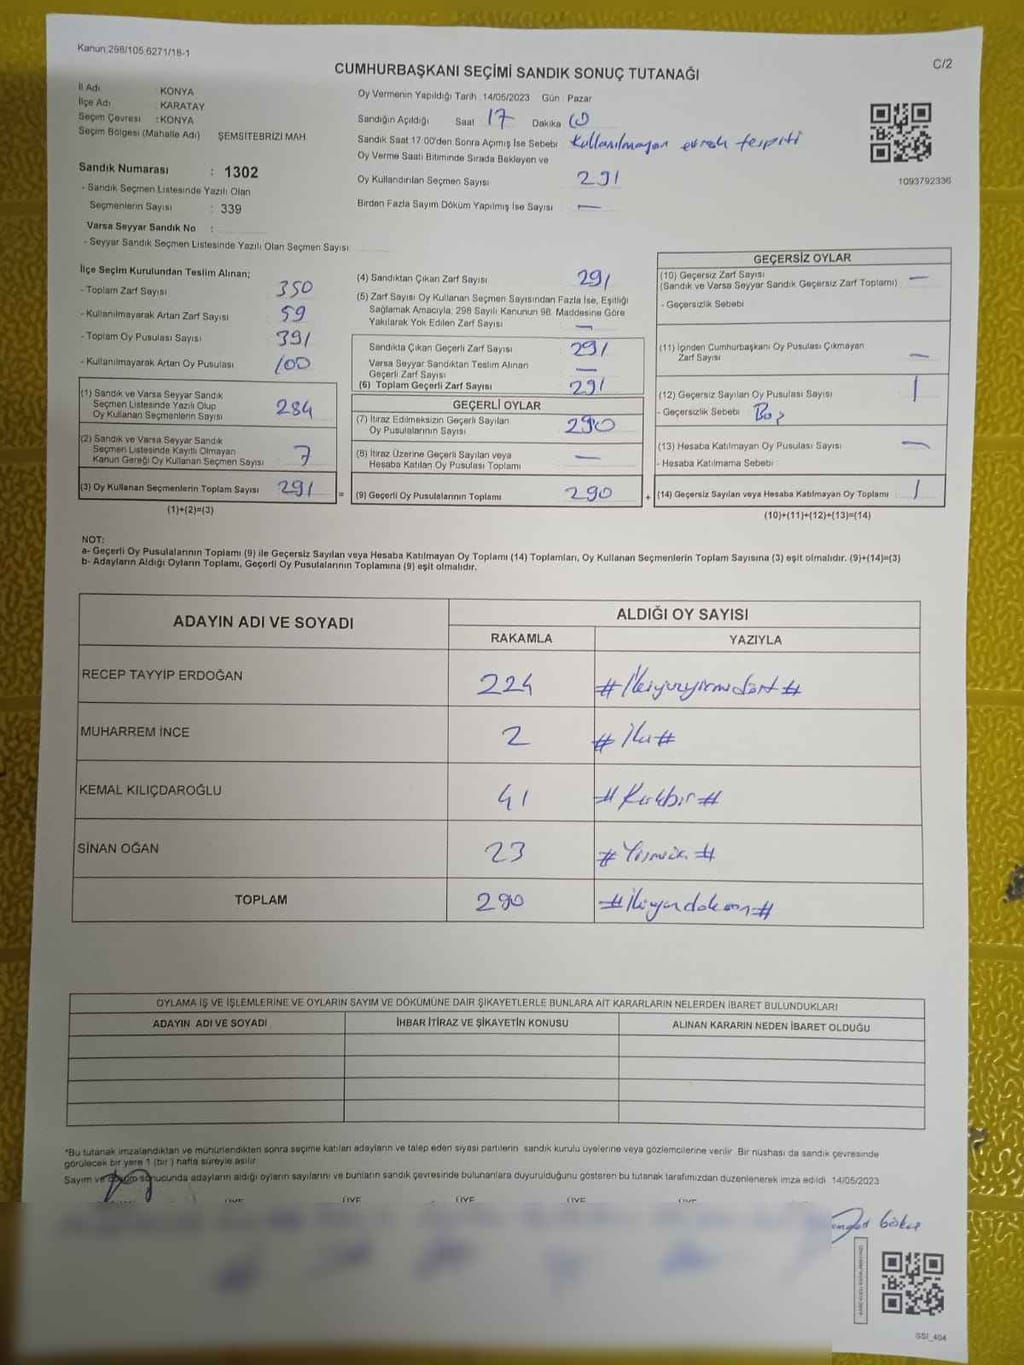 Kanun 298/105 6271/18-1
C/2
CUMHURBAŞKANI SEÇİMİ SANDIK SONUÇ TUTANAĞI
İl Adı : KONYA
İlçe Adı : KARATAY
Seçim Çevresi : KONYA
Seçim Bölgesi (Mahalle Adı) ŞEMSİTEBRİZİ MAH
Sandık Numarası : 1302
- Sandık Seçmen Listesinde Yazılı Olan
Seçmenlerin Sayısı : 339
Varsa Seyyar Sandık No :
- Seyyar Sandık Seçmen Listesinde Yazılı Olan Seçmen Sayısı
Oy Vermenin Yapıldığı Tarih 14/05/2023 Gün Pazar
Sandığın Açıldığı Saat 17 Dakika 10
Sandık Saat 17:00'den Sonra Açımış İse Sebebi Kullanılmayan evrak tespiti
Oy Verme Saati Bitiminde Sırada Bekleyen ve
Oy Kullandırılan Seçmen Sayısı 291
Birden Fazla Sayım Döküm Yapılmış İse Sayısı —
1093792336
İlçe Seçim Kurulundan Teslim Alınan;
- Toplam Zarf Sayısı 350
- Kullanılmayarak Artan Zarf Sayısı 59
- Toplam Oy Pusulası Sayısı 391
- Kullanılmayarak Artan Oy Pusulası 100
(1) Sandık ve Varsa Seyyar Sandık
Seçmen Listesinde Yazılı Olup
Oy Kullanan Seçmenlerin Sayısı 284
(2) Sandık ve Varsa Seyyar Sandık
Seçmen Listesinde Kayıtlı Olmayan
Kanun Gereği Oy Kullanan Seçmen Sayısı 7
(3) Oy Kullanan Seçmenlerin Toplam Sayısı 291 =
(1)+(2)=(3)
(4) Sandıktan Çıkan Zarf Sayısı 291
(5) Zarf Sayısı Oy Kullanan Seçmen Sayısından Fazla İse, Eşitliği
Sağlamak Amacıyla, 298 Sayılı Kanunun 98. Maddesine Göre
Yakılarak Yok Edilen Zarf Sayısı —
Sandıkta Çıkan Geçerli Zarf Sayısı 291
Varsa Seyyar Sandıktan Teslim Alınan
Geçerli Zarf Sayısı —
(6) Toplam Geçerli Zarf Sayısı 291
GEÇERLİ OYLAR
(7) İtiraz Edilmeksizin Geçerli Sayılan
Oy Pusulalarının Sayısı 290
(8) İtiraz Üzerine Geçerli Sayılan veya
Hesaba Katılan Oy Pusulası Toplamı —
(9) Geçerli Oy Pusulalarının Toplamı 290 +
GEÇERSİZ OYLAR
(10) Geçersiz Zarf Sayısı —
(Sandık ve Varsa Seyyar Sandık Geçersiz Zarf Toplamı)
- Geçersizlik Sebebi
(11) İçinden Cumhurbaşkanı Oy Pusulası Çıkmayan
Zarf Sayısı —
(12) Geçersiz Sayılan Oy Pusulası Sayısı 1
- Geçersizlik Sebebi Boş
(13) Hesaba Katılmayan Oy Pusulası Sayısı —
- Hesaba Katılmama Sebebi
(14) Geçersiz Sayılan veya Hesaba Katılmayan Oy Toplamı 1
(10)+(11)+(12)+(13)=(14)
NOT:
a- Geçerli Oy Pusulalarının Toplamı (9) ile Geçersiz Sayılan veya Hesaba Katılmayan Oy Toplamı (14) Toplamları, Oy Kullanan Seçmenlerin Toplam Sayısına (3) eşit olmalıdır. (9)+(14)=(3)
b- Adayların Aldığı Oyların Toplamı, Geçerli Oy Pusulalarının Toplamına (9) eşit olmalıdır.
ADAYIN ADI VE SOYADI
ALDIĞI OY SAYISI
RAKAMLA YAZIYLA
RECEP TAYYİP ERDOĞAN 224 #İkiyüzyirmidört#
MUHARREM İNCE 2 #İki#
KEMAL KILIÇDAROĞLU 41 #Kırkbir#
SİNAN OĞAN 23
TOPLAM 290 #İkiyüzdoksan#
OYLAMA İŞ VE İŞLEMLERİNE VE OYLARIN SAYIM VE DÖKÜMÜNE DAİR ŞİKAYETLERLE BUNLARA AİT KARARLARIN NELERDEN İBARET BULUNDUKLARI
ADAYIN ADI VE SOYADI İHBAR İTİRAZ VE ŞİKAYETİN KONUSU ALINAN KARARIN NEDEN İBARET OLDUĞU
*Bu tutanak imzalandıktan ve mühürlendikten sonra seçime katılan adayların ve talep eden siyasi partilerin sandık kurulu üyelerine veya gözlemcilerine verilir Bir nüshası da sandık çevresinde
görülecek bir yere 1 (bir) hafta süreyle asılır
Sayım ve döküm sonucunda adayların aldığı oyların sayılarını ve bunların sandık çevresinde bulunanlara duyurulduğunu gösteren bu tutanak tarafımızdan düzenlenerek imza edildi 14/05/2023
ÜYE ÜYE ÜYE ÜYE
SSI_404